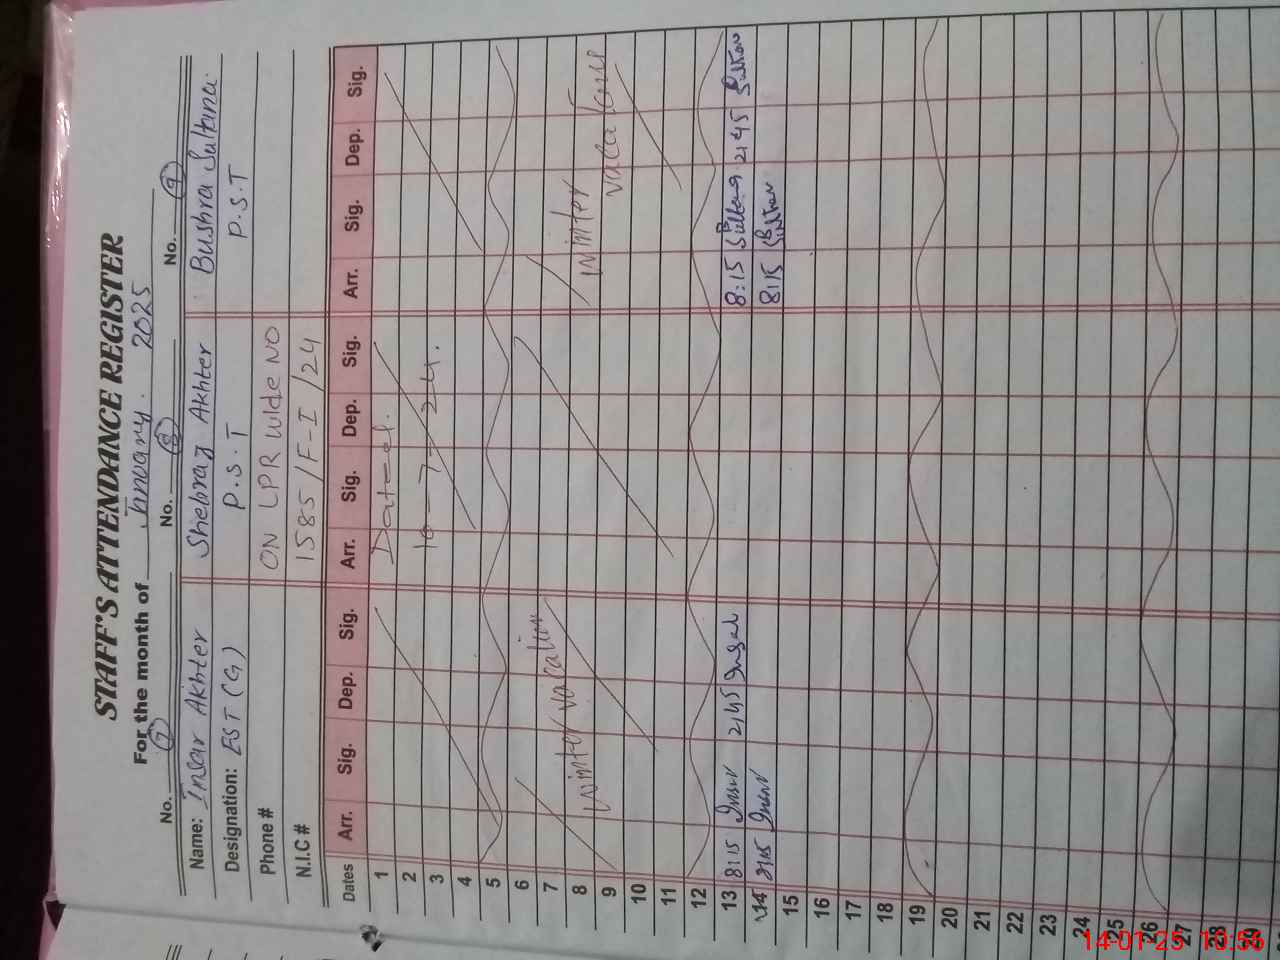 STAFF'S ATTENDANCE REGISTER
For the month of January. 2025
No. 7 No. 8 No. 9
Name: Insar Akhter Shebraz Akhter Bushra Sultana
Designation: EST (G) P.S.T P.S.T
Phone # ON LPR wide NO
N.I.C # 1585/F-I/24
Dates Arr. Sig. Dep. Sig. Arr. Sig. Dep. Sig. Arr. Sig. Dep. Sig.
1 Dated.
2
3 10-7-24.
4
5
6
7 winter vacation
8 winter
9 vacations
10
11
12
13 8:15 Insar 2:45 8:15 2:45
14 8:15 Insar 8:15
15
16
17
18
19
20
21
22
23
24
25
26
27
28
29
14-01-25 10:56